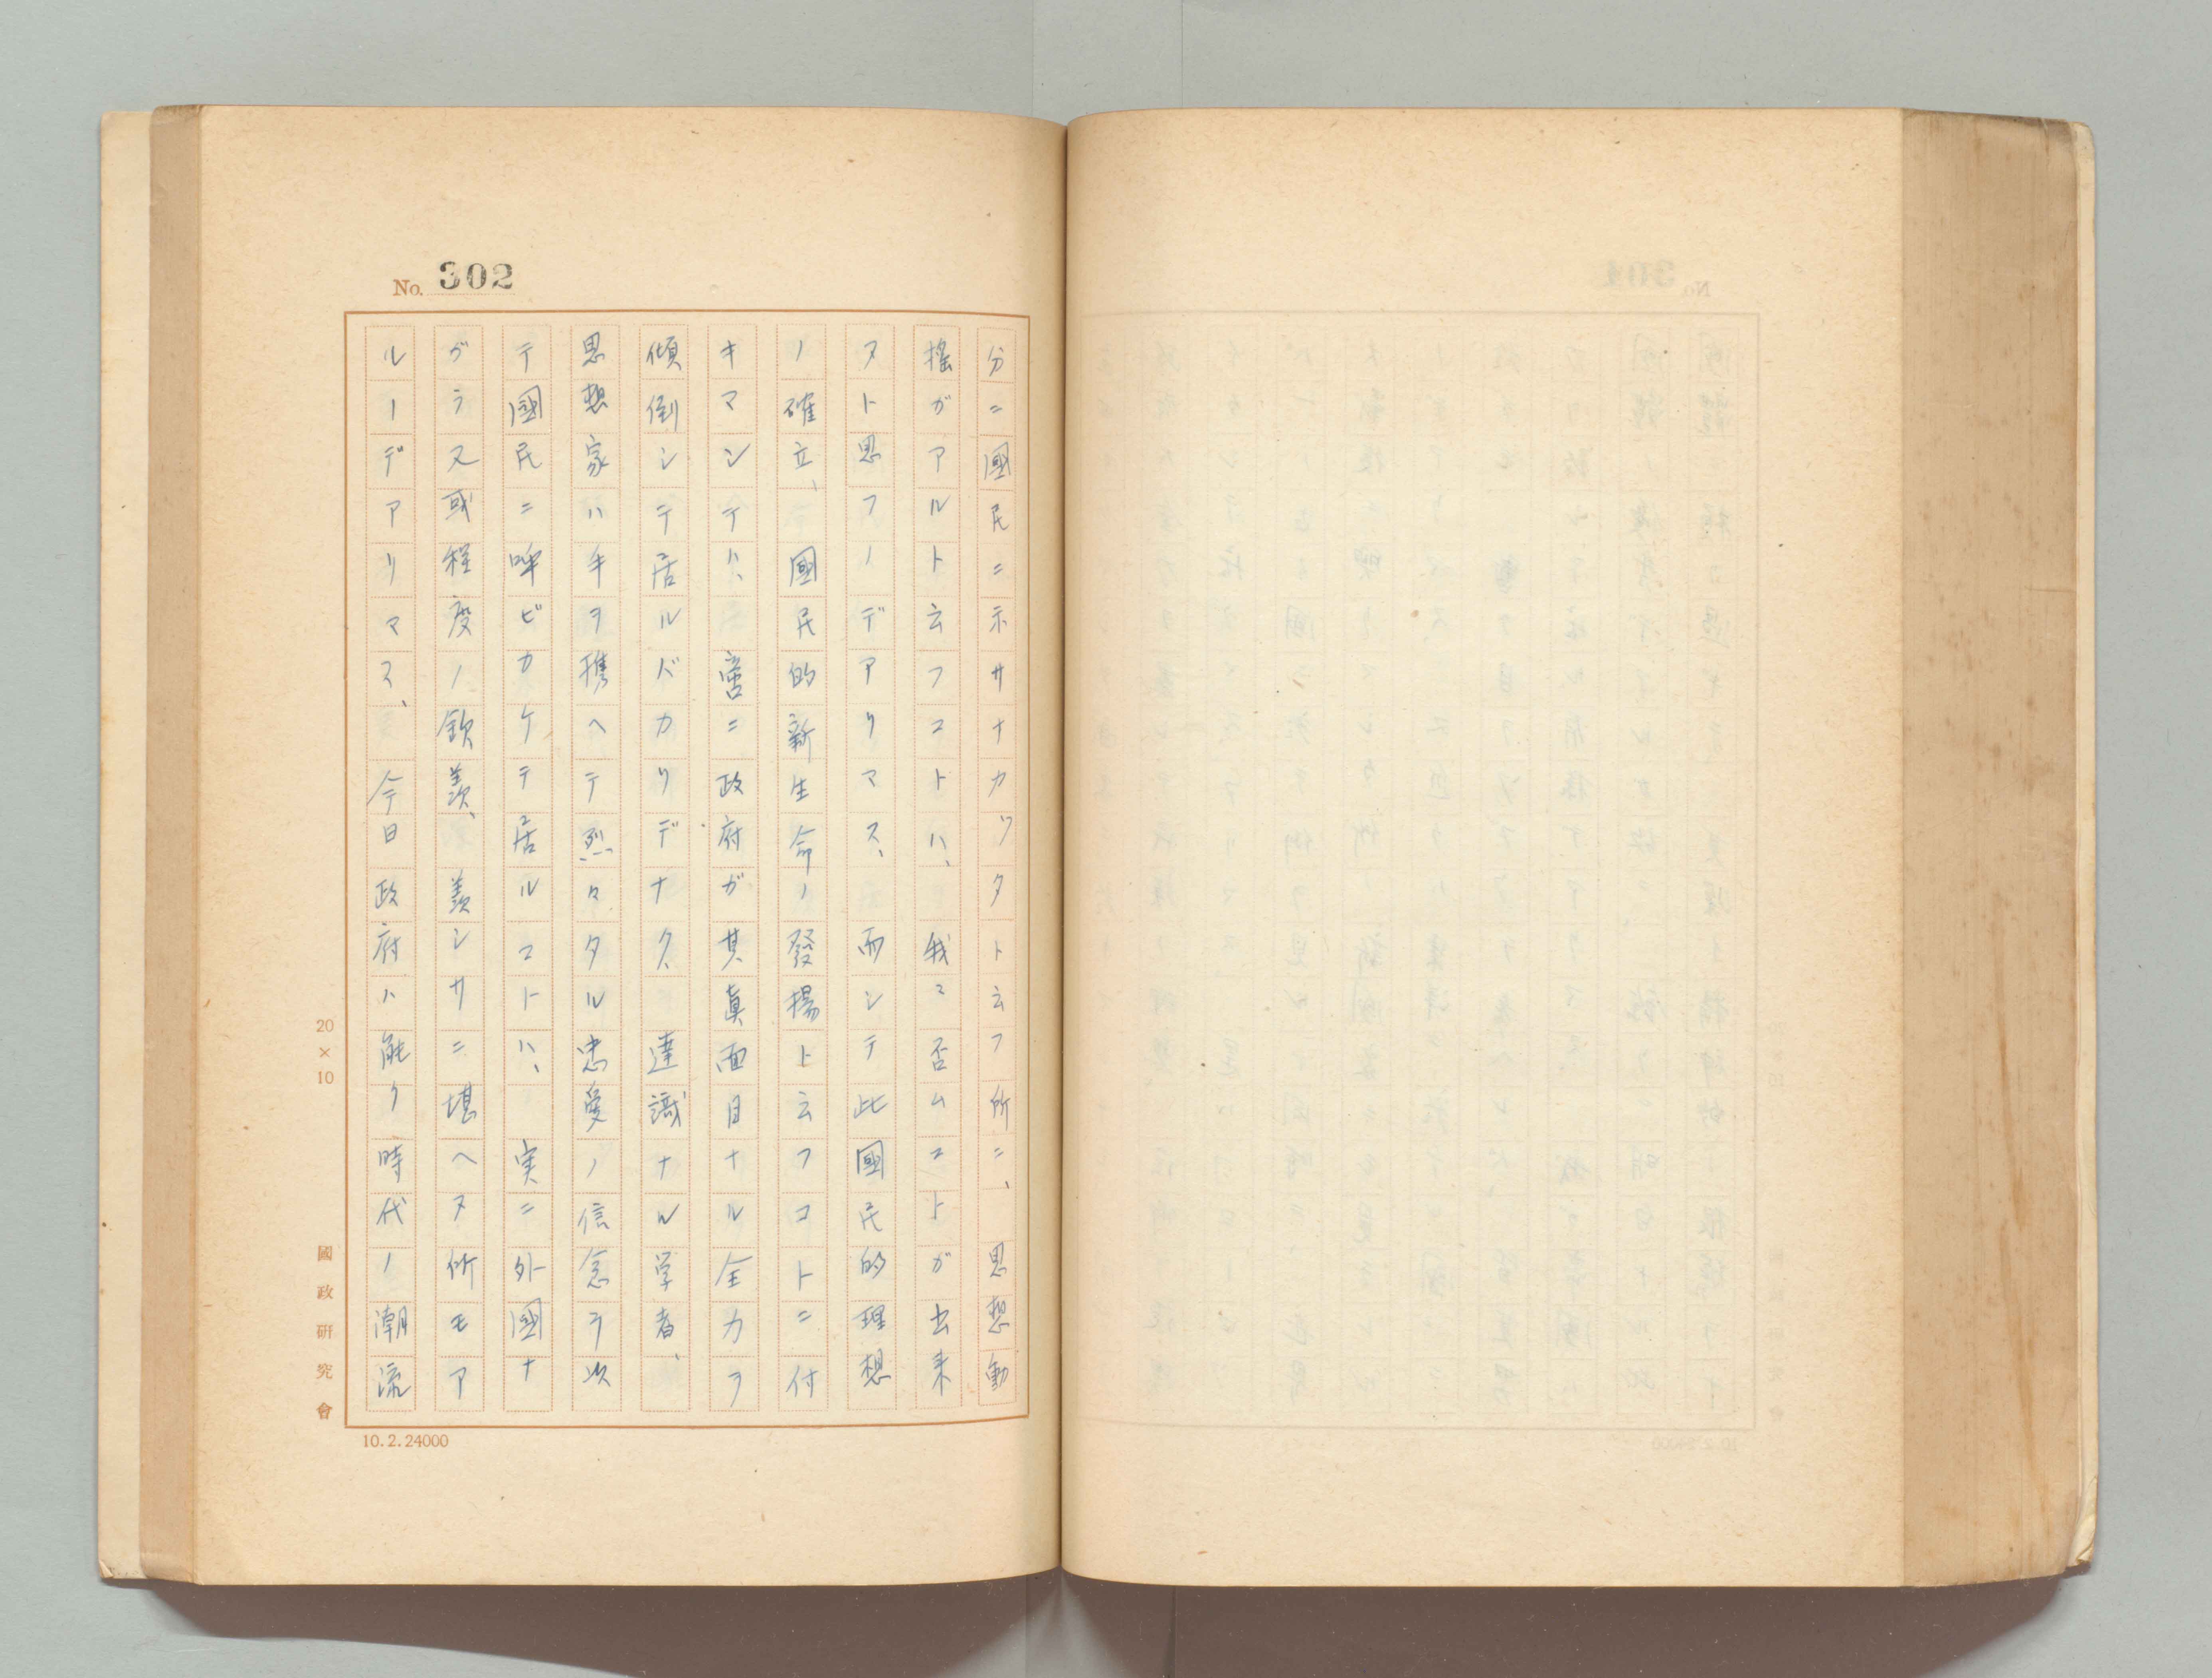 No. 302
分ニ國民ニ示サナカツタト云フ所ニ、思想動
搖ガアルト云フコトハ、我々否ムコトガ出来
ヌト思フノデアリマス、而シテ此國民的理想
ノ確立、國民的新生命ノ發揚ト云フコトニ付
キマシテハ、啻ニ政府ガ其真面目ナル全力ヲ
傾倒シテ居ルバカリデナク、達識ナル学者、
思想家ハ手ヲ携ヘテ烈々タル忠愛ノ信念ヲ以
テ國民ニ呼ビカケテ居ルコトハ、実ニ外國ナ
ガラ又或程度ノ欽羨、羨シサニ堪ヘヌ所モア
ルノデアリマス、今日政府ハ能ク時代ノ潮流
20×10
國政研究會
10.2.24000